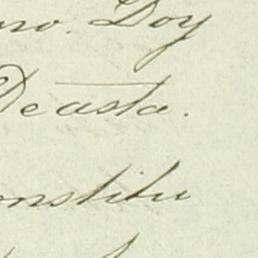 mo. Doy
Deasta.
onstitu